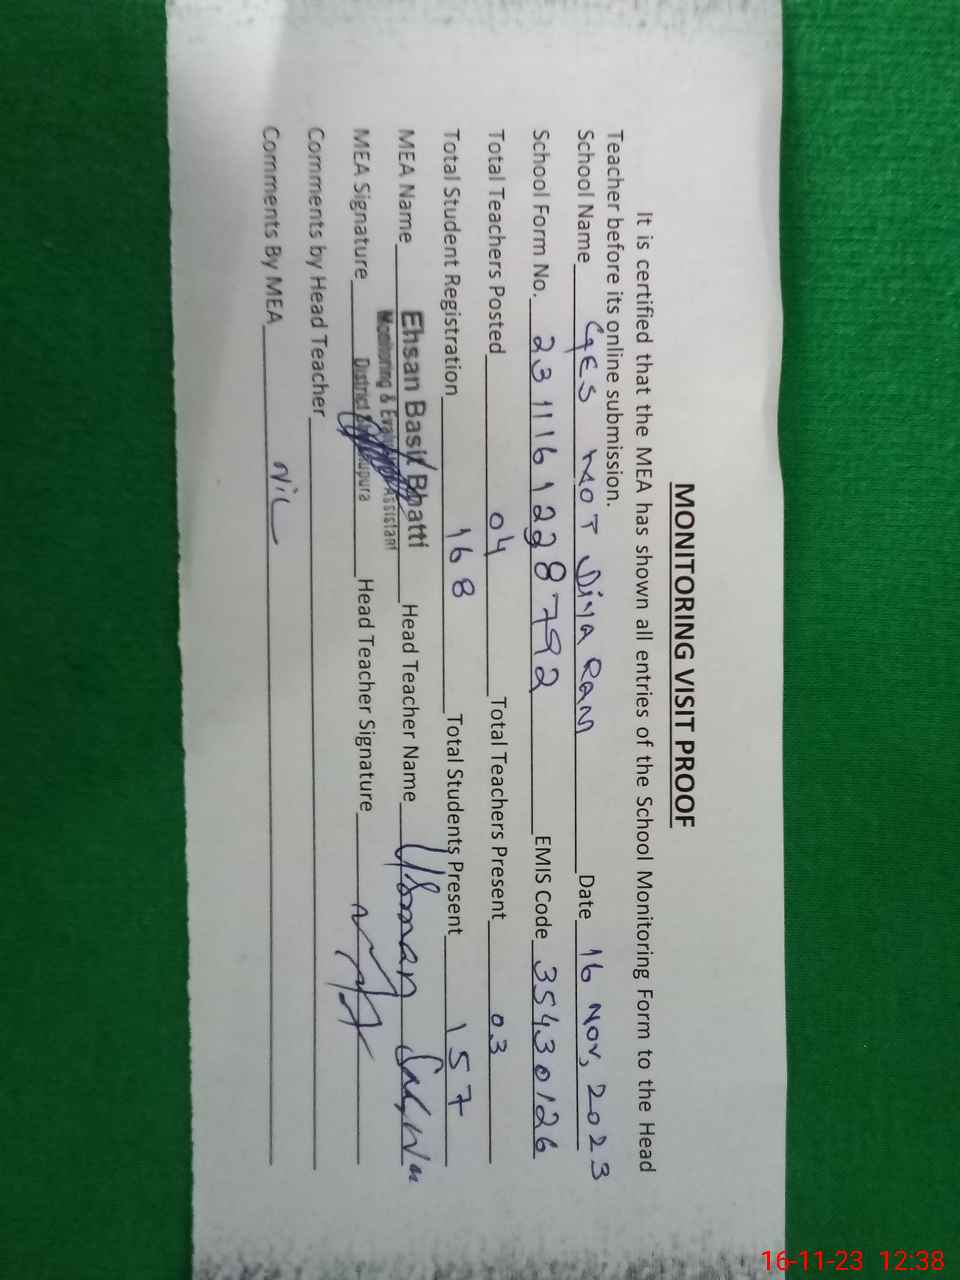 MONITORING VISIT PROOF
It is certified that the MEA has shown all entries of the School Monitoring Form to the Head
Teacher before its online submission.
School Name GES KOT Diya RAM Date 16 Nov, 2023
School Form No. 23111612287 92 EMIS Code 35430126
Total Teachers Posted 04 Total Teachers Present 03
Total Student Registration 168 Total Students Present 157
MEA Name Ehsan Basit Bhatti Head Teacher Name Usman
Monitoring & Evaluation Assistant
MEA Signature District Head Teacher Signature
Comments by Head Teacher
Comments By MEA NiL
16-11-23 12:38